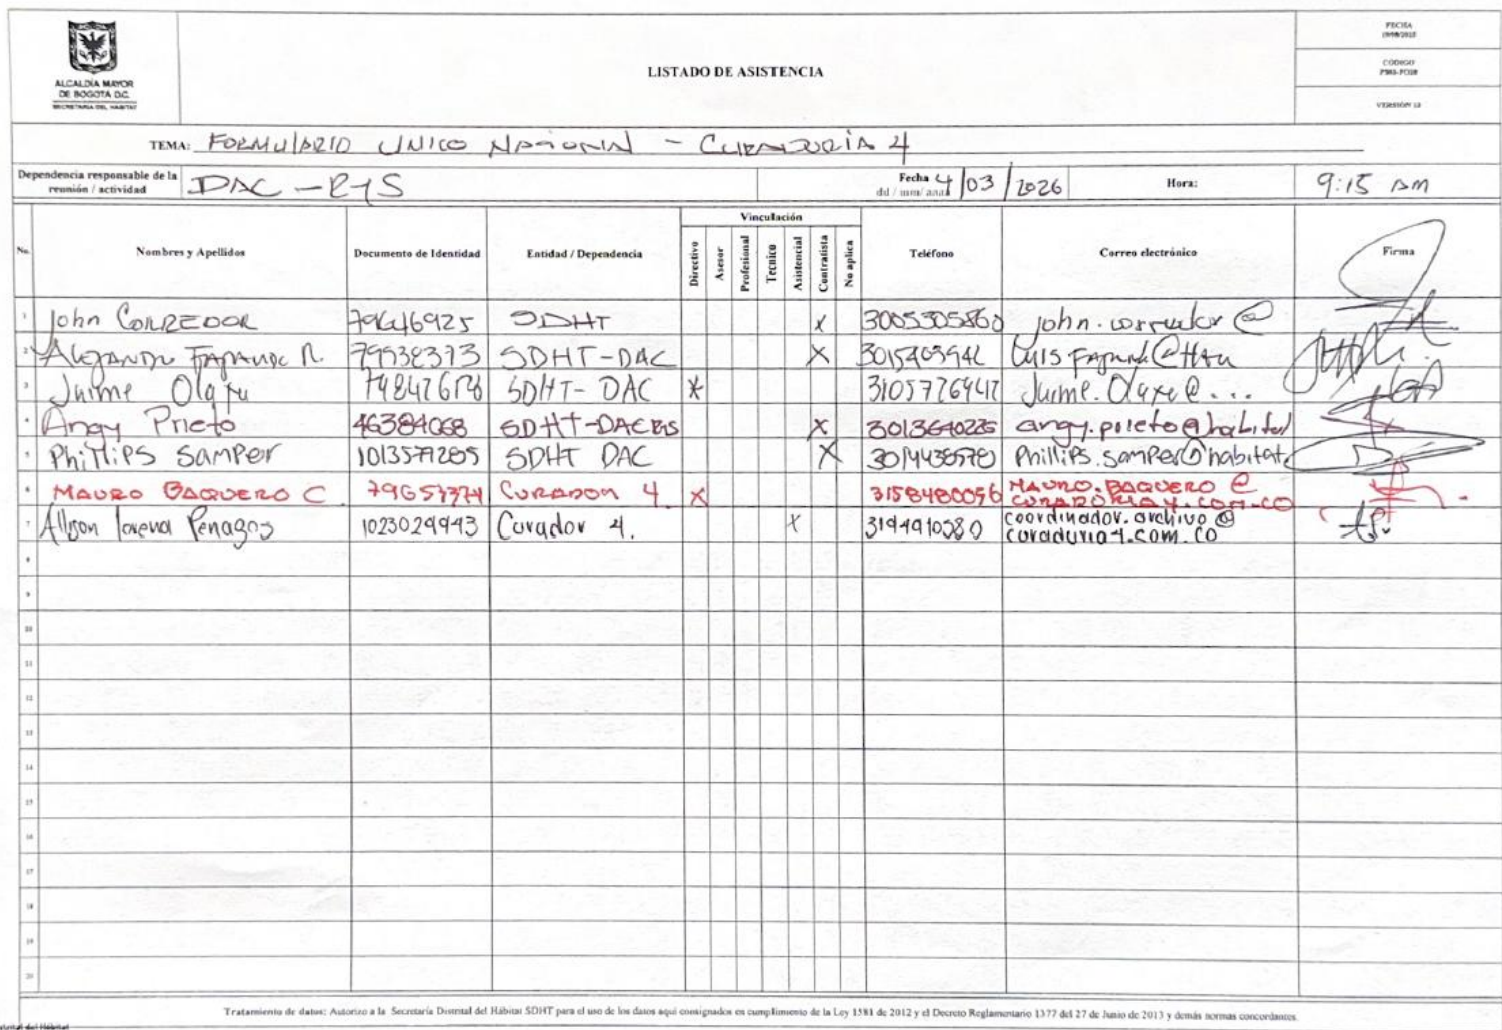 ALCALDÍA MAYOR
DE BOGOTÁ D.C.
SECRETARÍA DEL HÁBITAT
LISTADO DE ASISTENCIA
FECHA
CÓDIGO
VERSIÓN 13
TEMA: FORMULARIO UNICO NACIONAL - CURADURÍA 4
Dependencia responsable de la reunión / actividad
DAC - RYS
Fecha 4/03/2026
dd / mm/ aaaa
Hora: 9:15 AM
No. Nombres y Apellidos Documento de Identidad Entidad / Dependencia Vinculación Teléfono Correo electrónico Firma
Directivo Asesor Profesional Tecnico Asistencial Contratista No aplica
1 John CORREDOR 79646925 SDHT X 3005305860 john.corredor@
2 Alejandro R. 79938373 SDHT-DAC X Luis
3 Jaime SDHT-DAC X 3105776947 Jaime. @...
4 Angy Prieto 46384068 SDHT- X 3013640225 angy.prieto@habitat
5 PhilliPS SamPer 1013577285 SDHT DAC X 3014438578 Phillips.samPer@habitat
6 MAURO BAQUERO C 79657374 CURADOR 4 X 3158480056 MAURO.BAQUERO@
CURADURIA4.COM.CO
7 Allyson Lorena Penagos 1023029943 Curador 4. X 3194910580 coordinador.archivo@
curaduria4.com.co
8
9
10
11
12
13
14
15
16
17
18
19
20
Tratamiento de datos: Autorizo a la Secretaría Distrital del Hábitat SDHT para el uso de los datos aquí consignados en cumplimiento de la Ley 1581 de 2012 y el Decreto Reglamentario 1377 del 27 de Junio de 2013 y demás normas concordantes.